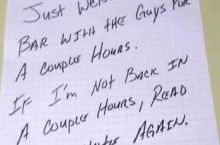 Just
Bar with the Guys for
A Couple Hours.
If I'm Not Back in
A Couple Hours, Read
Again.